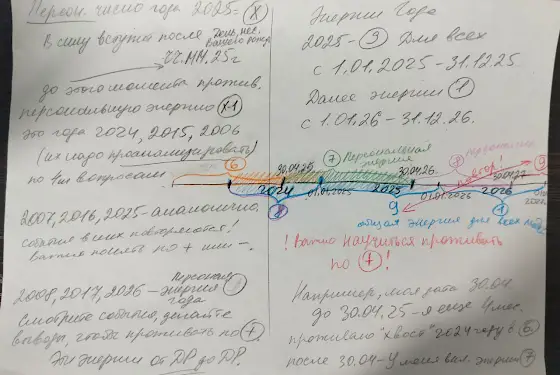 Персон. число года 2025- X
В силу вступает после день, мес. вашего рожд.
ЧЧ.ММ.25г
до этого момента прожив.
персональную энергию X-1
это года 2024, 2015, 2006
(их надо проанализировать)
по 4м вопросам
2007, 2016, 2025 - аналогично.
события в них повторяются!
важно понять по + или -.
2008, 2017, 2026 -
энергия
года
Смотрите события, делайте
выводы, чтобы проживать по +.
Эти энергии от ДР до ДР.
Энергии Года
2025 - 9 Для всех
с 1.01.2025 - 31.12.25
Далее энергии 1
с 1.01.26 - 31.12.26.
6
30.04.25
7 Персональная энергия
30.04.26
8
повтор!
9
30.04.27
2024
01.01.2025
2025
01.01.2026
2026
8
9
1
общая энергия для всех
! Важно научиться проживать
по + !
Например, моя дата 30.04
до 30.04.25 - я еще 4 мес.
проживаю "хвост" 2024 году в 6
после 30.04 - у меня вкл. энергия 7